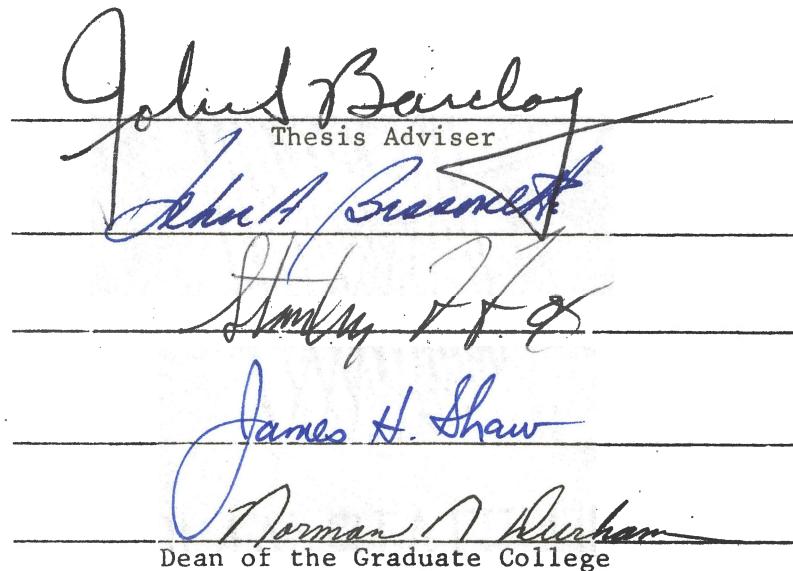 John S Barclay
Thesis Adviser
John A Bissonette
Stanley F. Fox
James H. Shaw
Norman N Durham
Dean of the Graduate College